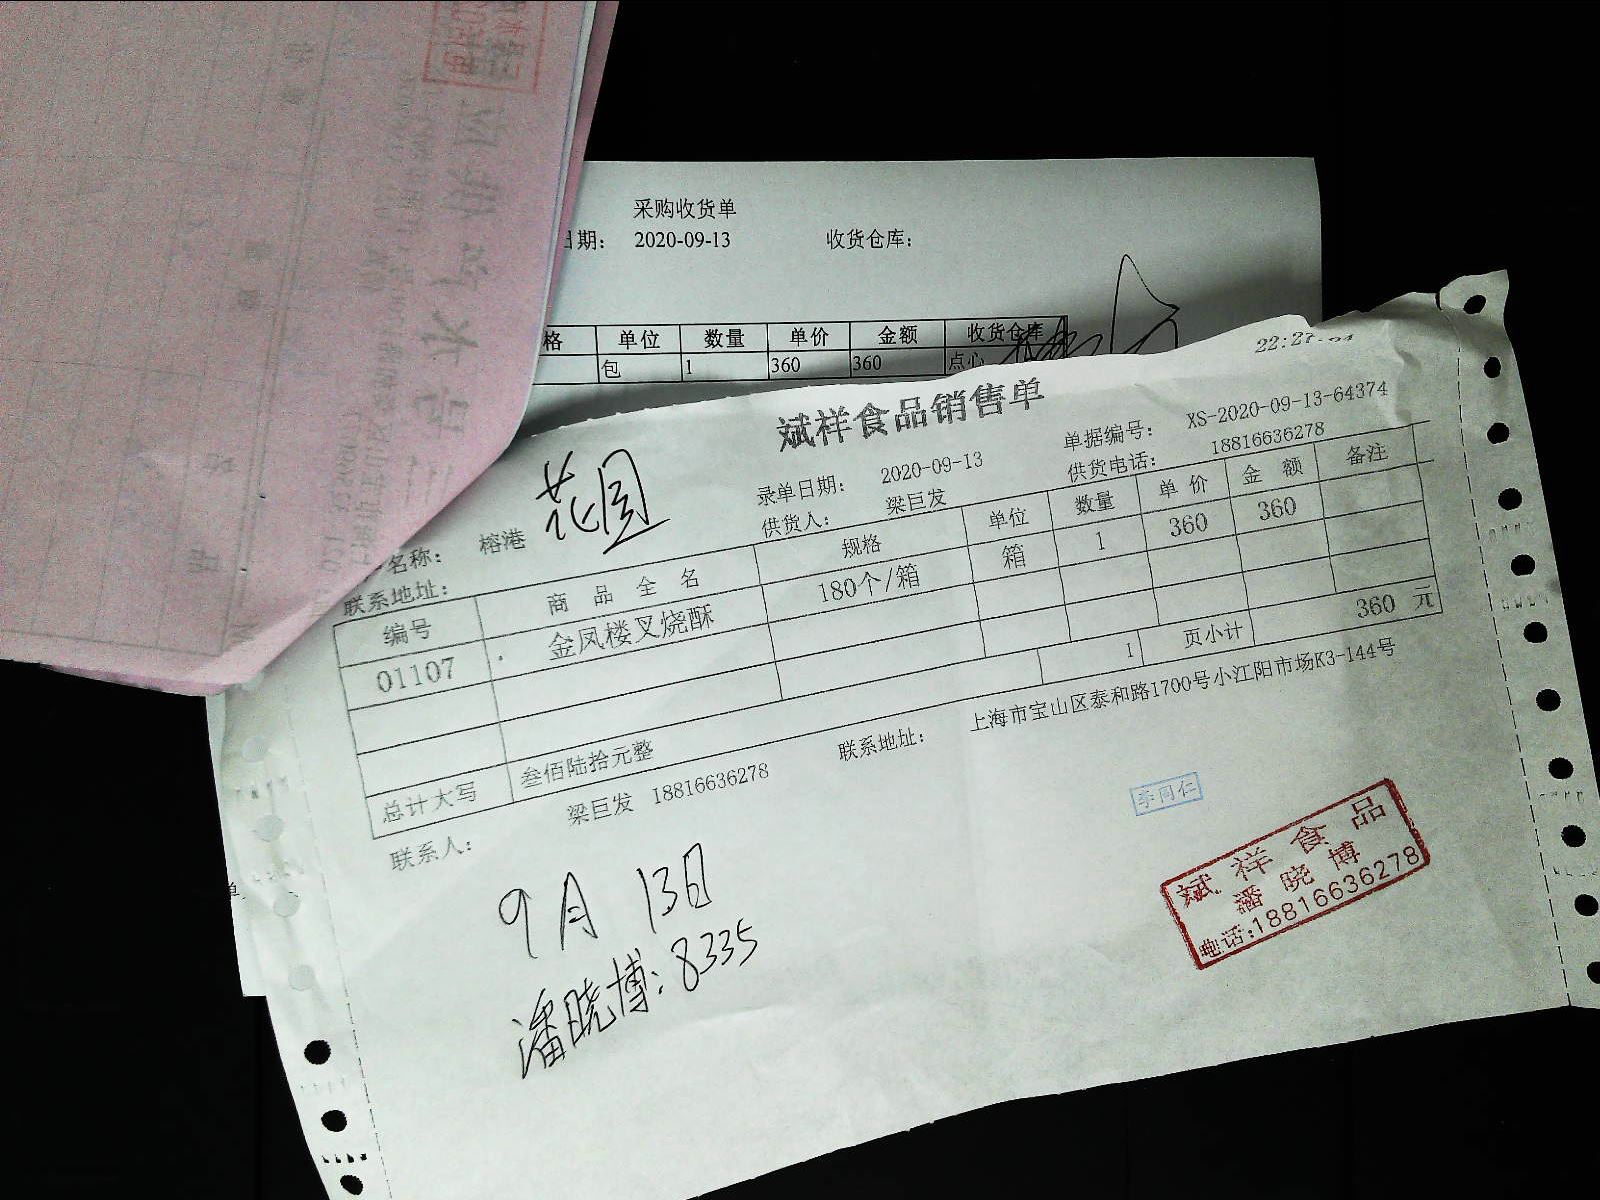 采购收货单
日期： 2020-09-13 收货仓库：
格 单位 数量 单价 金额 收货仓库
包 1 360 360 点心
22:27:
斌祥食品销售单
单据编号： XS-2020-09-13-64374
录单日期： 2020-09-13 供货电话： 18816636278
名称： 榕港 花园 供货人： 梁巨发
联系地址：
编号 商品全名 规格 单位 数量 单价 金额 备注
01107 . 金凤楼叉烧酥 180个/箱 箱 1 360 360
1 页小计 360 元
总计大写 叁佰陆拾元整
联系人： 梁巨发 18816636278 联系地址： 上海市宝山区泰和路1700号小江阳市场K3-144号
李同仁
斌祥食品
潘晓博
电话:18816636278
9月13日
潘晓博：8335